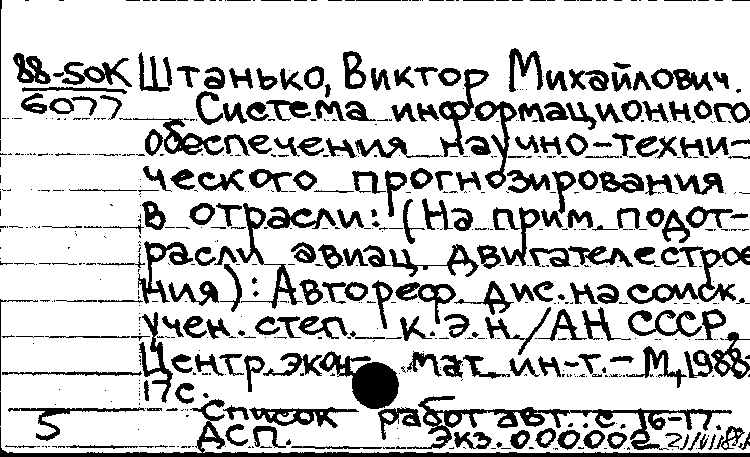 88-50К Штанько, Виктор Михайлович.
6077 Система информационного
обеспечения научно-техни-
ческого прогнозирования
в отрасли: (На прим. подот-
расли авиац. двигателестрое
ния): Автореф. дис. на соиск.
учен. степ. к.э.н. / АН СССР,
Центр. экон- мат. ин-т. - М., 1988
17с.
Список работ авт.: с. 16-17.
5 ДСП. Экз. 000002